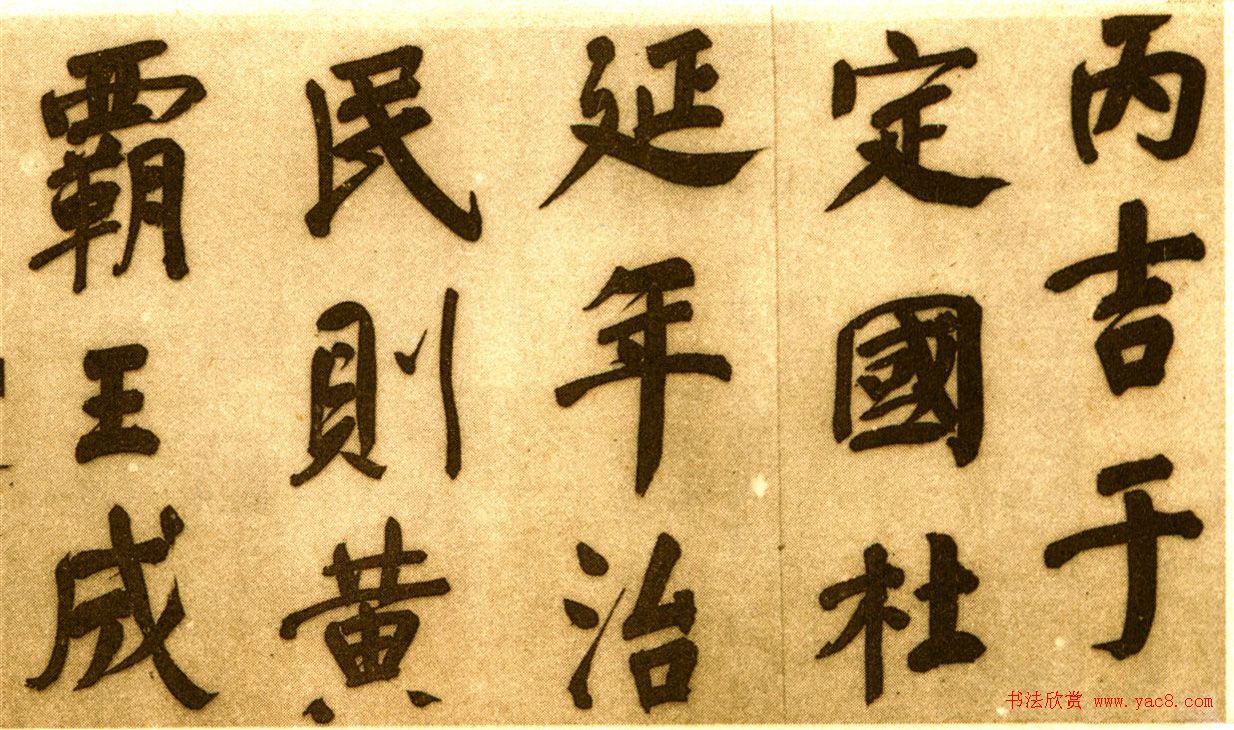 丙吉于
定國杜
延年治
民則黃
霸王成
书法欣赏 www.yac8.com